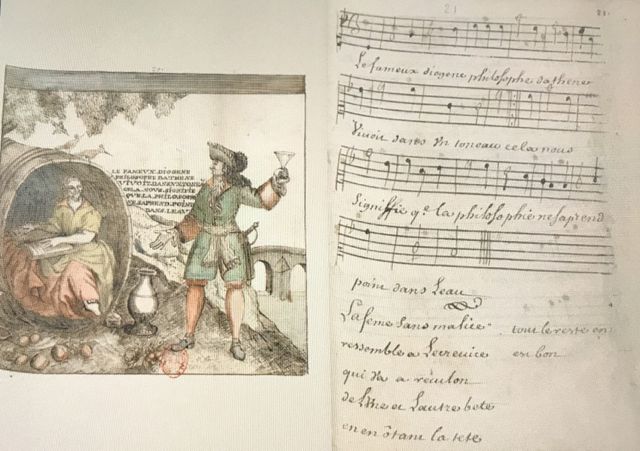 LE FAMEVX DIOGENE
PHILOSOPHE DATHENE
VIVOIT DANS VN TONE
CELA NOVS SIGNIFIE
QVE LA PHILOSOPHI
NE SAPREND POINT
DANS LEAV
21
21.
Le fameux diogene philosophe dathene
Vivoit dans Vn toneau cela nous
Signiffie qe. la philosophie ne saprend
point dans Leau
La feme sans malice tout le reste en
ressemble a Lecrevice est bon
qui Va a reculon
de Lune et Lautre bete
en en ôtant la tete